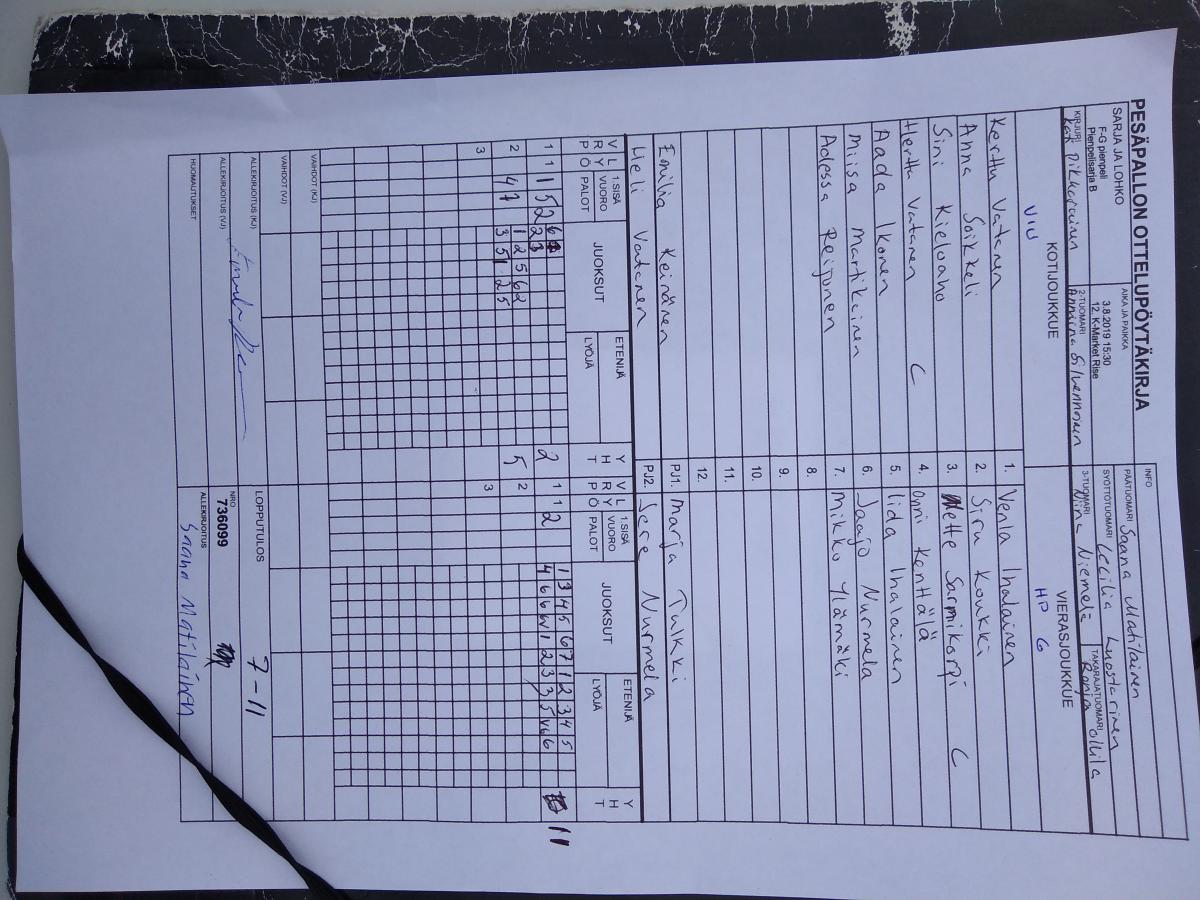 PESÄPALLON OTTELUPÖYTÄKIRJA
SARJA JA LOHKO
F-G pienpeli
Pienpelisarja B
AIKA JA PAIKKA
3.8.2019 15:30
12. K-Market Rise
INFO
PÄÄTUOMARI Saana Matilainen
SYÖTTÖTUOMARI Cecilia Luostarinen
KIRJURI Kati Pikkarainen
2-TUOMARI Anniina Silvennoinen
3-TUOMARI Niina Niemelä
TAKARAJATUOMARI Ronja Ollila
KOTIJOUKKUE VIERASJOUKKUE
VIU HP G
Kerttu Vatanen 1. Venla Ihalainen
Anna Soikkeli 2. Siru Koukki
Sini Kieloaho 3. Mette Sarmikorpi C
Hertta Vatanen C 4. Onni Kenttälä
Aada Ikonen 5. Iida Ihalainen
Miisa Martikainen 6. Jaajo Nurmela
Adessa Reijonen 7. Mikko Ylämäki
8.
9.
10.
11.
12.
Emilia Keinänen PJ1. Marja Tulkki
Heli Vatanen PJ2. Sere Nurmela
V L 1.SISÄ JUOKSUT ETENIJÄ Y V L 1.SISÄ JUOKSUT ETENIJÄ Y
R Y VUORO H R Y VUORO H
P Ö PALOT LYÖJÄ T P Ö PALOT LYÖJÄ T
1 1 1 5 2 6 2 1 1 2 1 3 4 5 6 7 1 2 3 4 5 11
2 2 3 4 6 6 1 2 3 3 5 6
2 4 7 1 2 5 6 2 5 2
3 5 1 2 5
3 3
VAIHDOT (KJ)
VAIHDOT (VJ)
ALLEKIRJOITUS (KJ)
LOPPUTULOS 7-11
ALLEKIRJOITUS (VJ)
NRO
736099
HUOMAUTUKSET
ALLEKIRJOITUS
Saana Matilainen